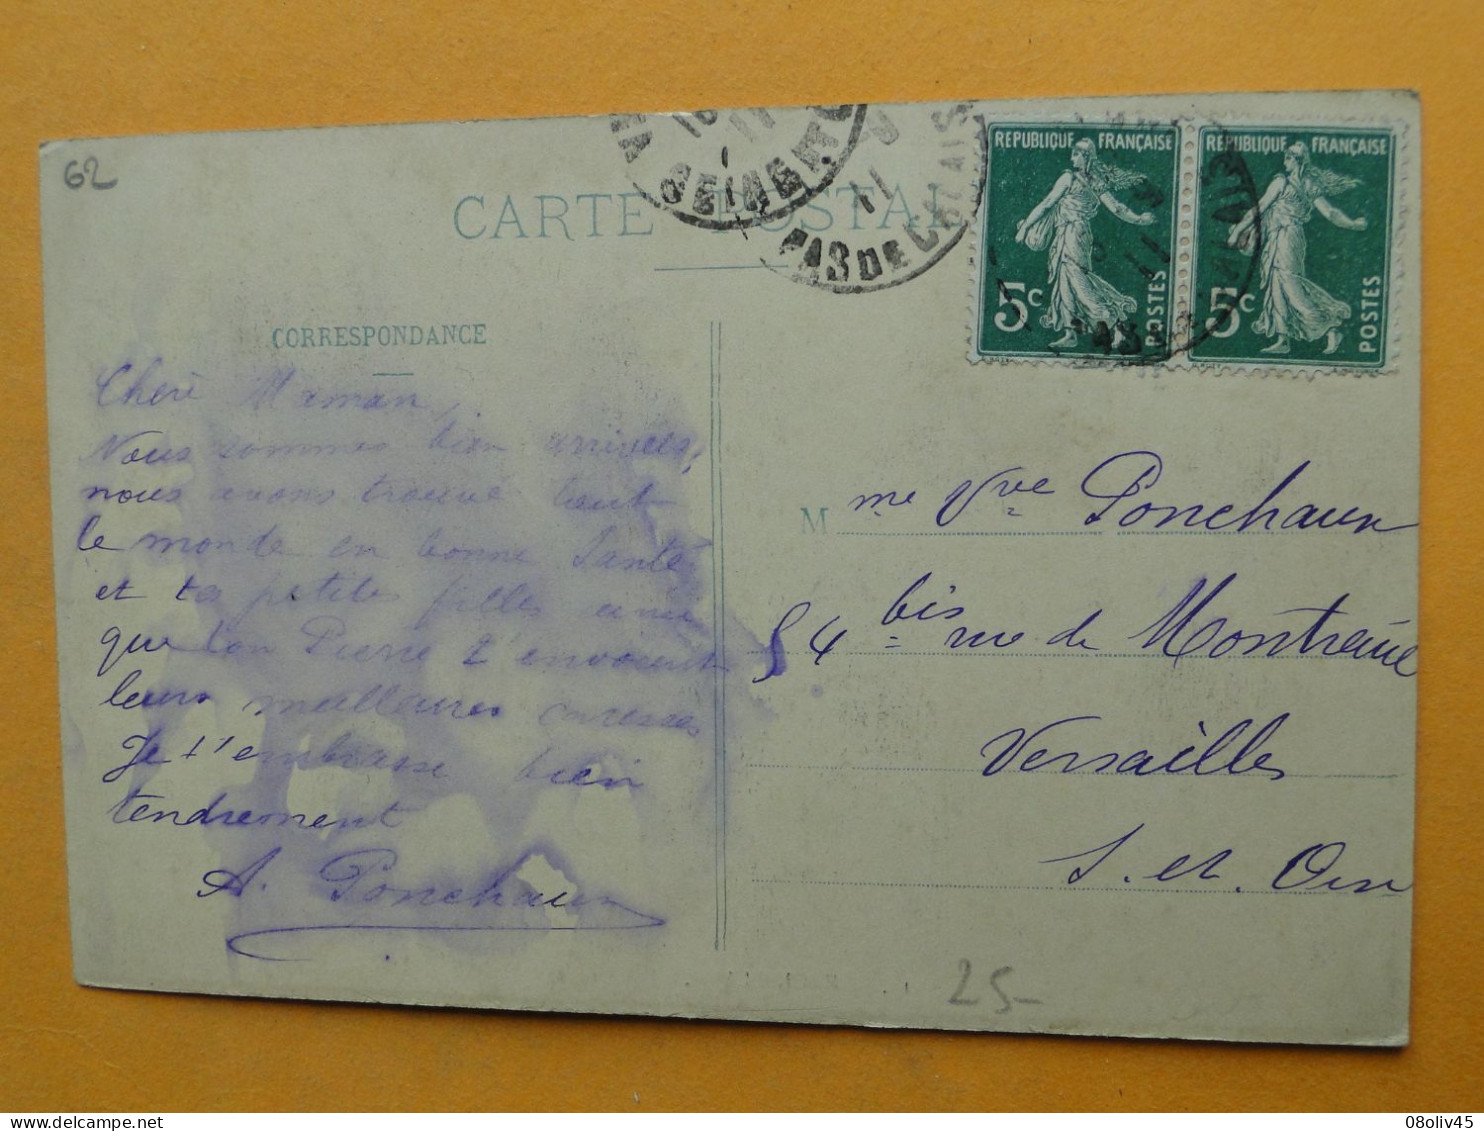 62
CARTE POSTALE
SEINE
PAS DE CALAIS
11
RÉPUBLIQUE FRANÇAISE
5c
POSTES
RÉPUBLIQUE FRANÇAISE
5c
POSTES
CORRESPONDANCE
Chère Maman,
Nous sommes bien arrivées,
nous avons trouvé tout
le monde en bonne santé
et tes petites filles ainsi
que ton Pierre t'envoient
leurs meilleures caresses
Je t'embrasse bien
tendrement
A. Ponchaux
M me Vve Ponchaux
54 bis rue de Montreuil
Versailles
S. et. Oise
25-
08oliv45